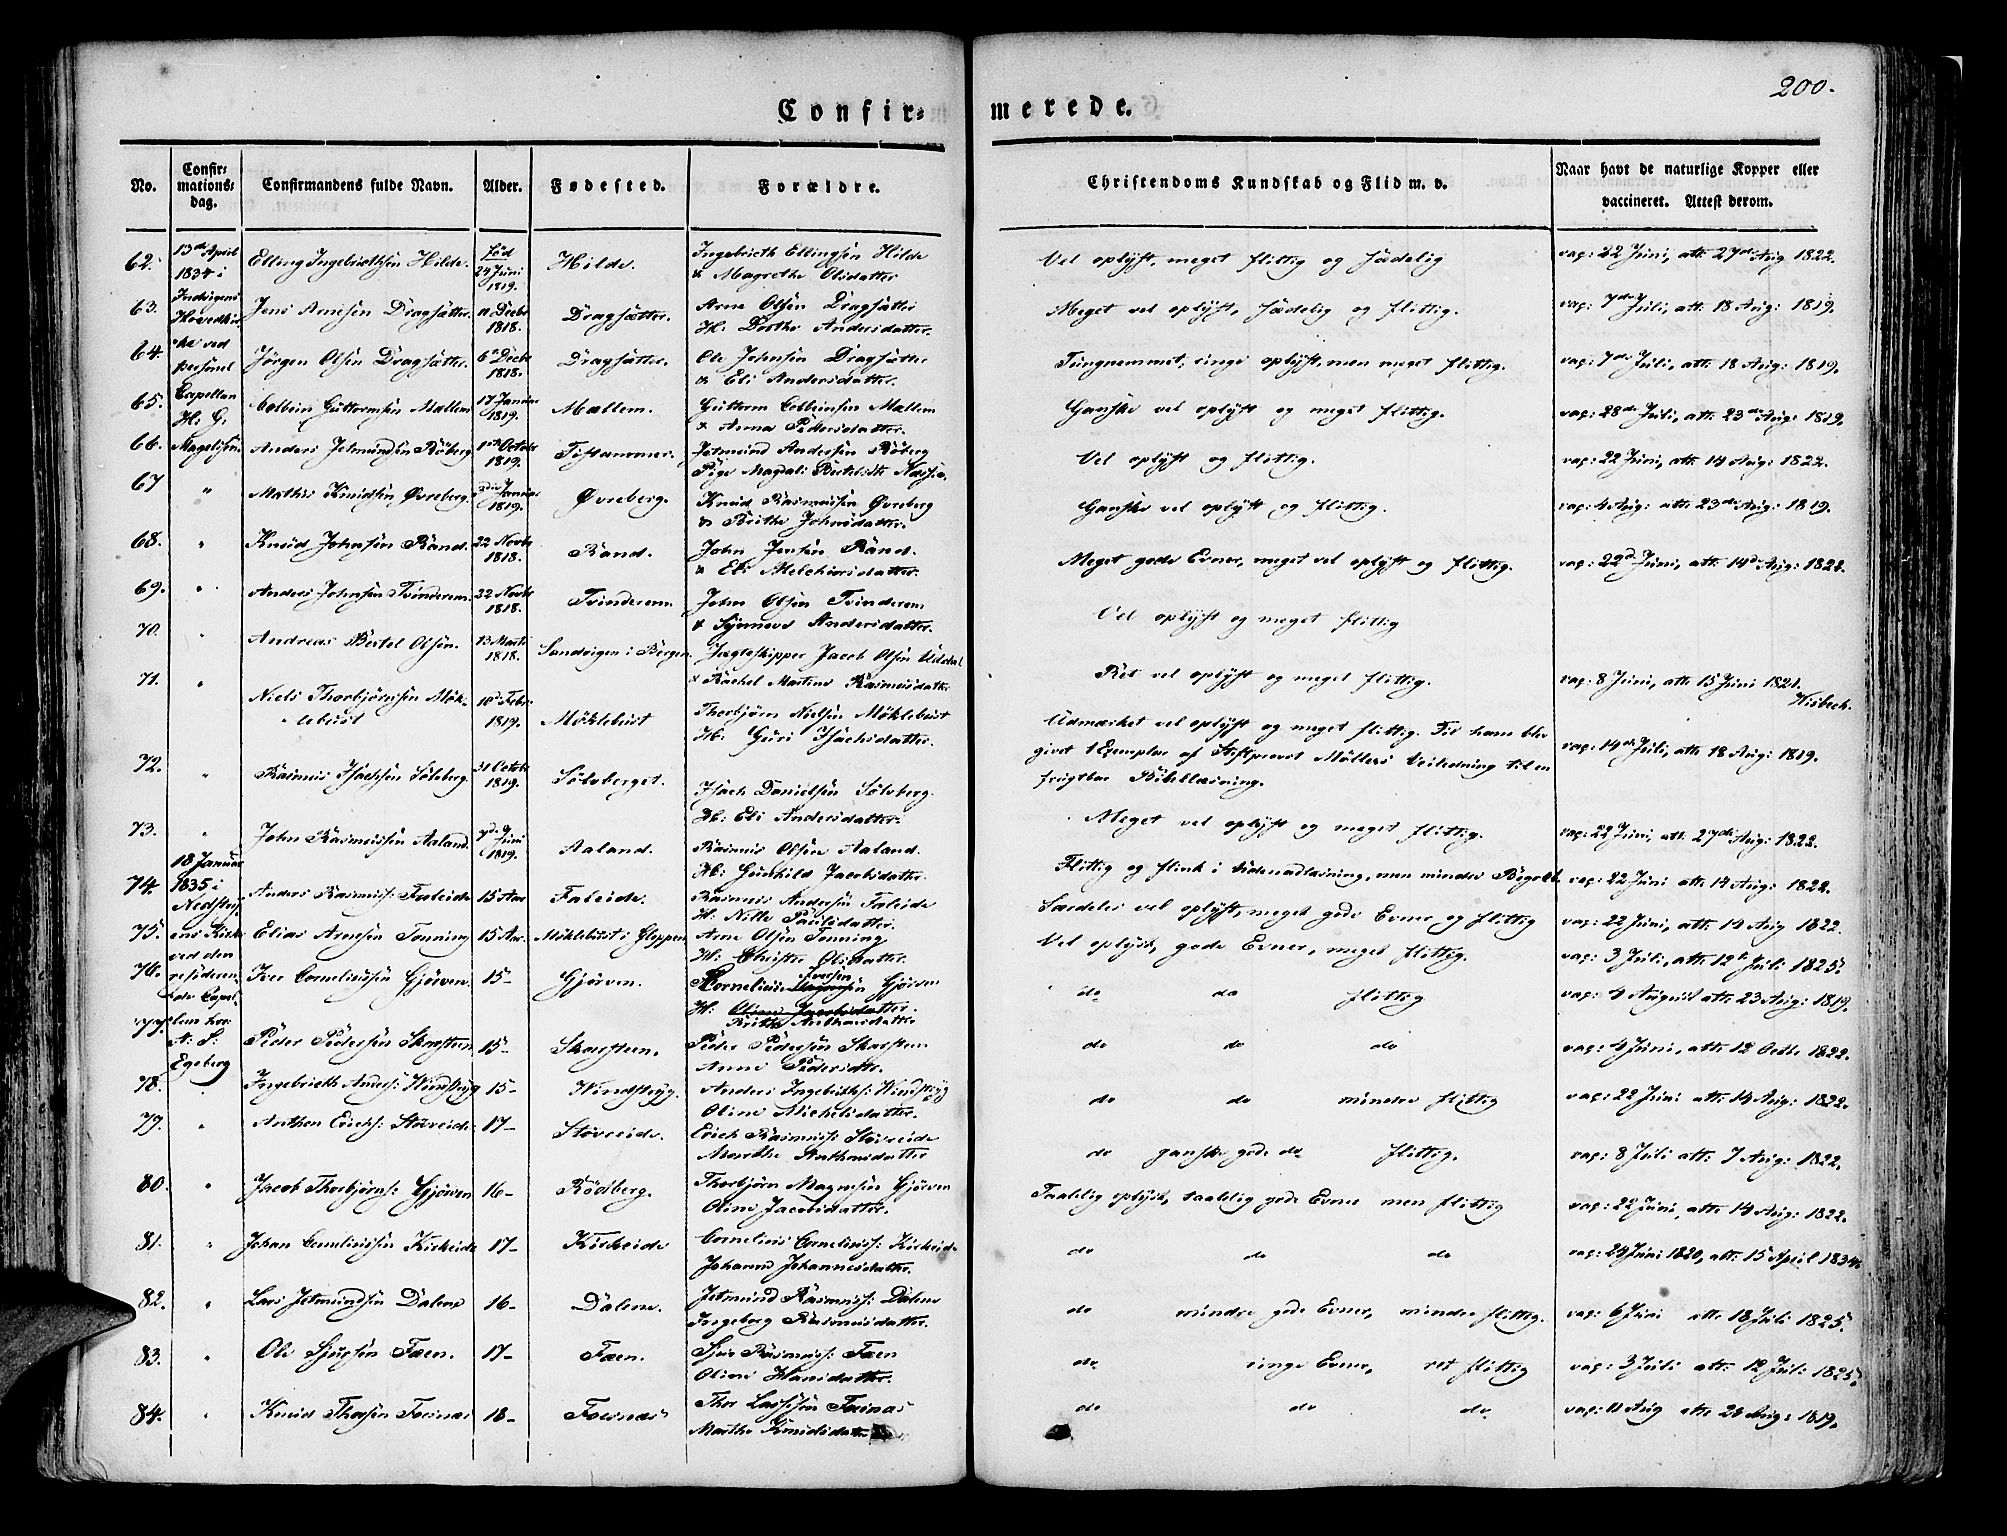 200.
Confirmerede.
No. Confirmationsdag. Confirmandens fulde Navn. Alder. Fødested. Forældre. Christendoms Kundskab og Flid m. v. Naar havt de naturlige Kopper eller vaccineret. Attest derom.
62. 13de April 1834 i Elling Ingebrigthsen Hilde. Fød 24 Juni 1819. Hilde. Ingebricth Ellingsen Hilde & Magrethe Olsdatter Vel oplyst, meget flittig og sædelig vac: 22 Juni, att: 27de Aug 1822.
63. Indvigens Hovedkir Jens Arnesen Dragsætter. 11 Decbr 1818. Dragsætter. Arne Olsen Dragsætter H: Dorthe Andersdatter. Meget vel oplyst, sædelig og flittig. vac: 7de Juli, att: 18 Aug: 1819.
64. ke ved personel Jørgen Olsen Dragsætter. 6 Decbr 1818. Dragsætter. Ole Johnsen Dragsætter & Eli Andersdatter. Tungnemmet, ringe oplyst, men meget flittig. vac: 7de Juli, att: 18 Aug: 1819.
65. Capellan H. G. Colbein Guttormsen Mællem 17 Januar 1819. Mællem. Guttorm Colbeinsen Mællem & Anna Pedersdatter. Ganske vel oplyst og meget flittig. vac: 28de Juli, att: 23de Aug: 1819.
66. Magelssen. Anders Jetmundsen Røberg 1ste Octobr 1819. Jetmund Andersen Røberg Pige Magdali Bertelsdtr Vel oplyst og flittig. vac: 22 Juni, att: 14 Aug: 1822.
67 " Mathis Knudsen Øvreberg. Januar 1819. Øvreberg. Knud Rasmussen Øvreberg & Brithe Johnsdatter. Ganske vel oplyst og flittig. vac: 4 Aug: att: 23de Aug: 1819.
68. " Knud Johnsen Rand. 22 Novbr 1818. Rand. John Jensen Rand. & Eli Melchiorsdatter. Meget gode Evner, meget vel oplyst og flittig. vac: 22d Juni, att: 14d Aug: 1822.
69. " Anders Johnsen Tvinderem. 22 Novbr 1818. Tvinderem. John Olsen Tvinderem & Synneve Andersdatter. Vel oplyst og meget flittig
70. " Andreas Bertel Olsen. 13 Marts 1818. Sandvigen i Bergen Jagteskipper Jacob Olsen & Rachel Martine Rasmusdatter Ret vel oplyst og meget flittig. vac: 8 Juni, att: 15 Juni 1821. Wisbech.
71. " Niels Thorbjørnsen Møklebust 10de Febr 1819. Møklebust Thorbjørn Nielsen Møklebust H: Guri Isachsdatter. Udmærket vel oplyst og meget flittig. Til ham blev givet 1 Exemplar af Stiftprovst Møllers Veiledning til en frugtbar Bibellæsning. vac: 14de Juli, att: 18 Aug: 1819.
72. " Rasmus Isachsen Sølvberg. 31 Octobr 1819. Sølvberget. Isach Danielsen Sølvberg. H: Eli Andersdatter. Meget vel oplyst og meget flittig. vac: 22 Juni, att: 27de Aug: 1822.
73. " John Rasmussen Aaland. Juni 1819. Aaland. Rasmus Olsen Aaland. H: Gunhild Jacobsdatter.
74. 18 Januar 1835 i Nedstryns Anders Rasmuss: Faleide 15 Aar Faleide. Rasmus Andersen Faleide H. Nille Paulsdatter. Flittig og flink i Udenadlæsning, men mindre Begreb. vac: 22 Juni att: 14 Aug: 1822.
75. ens Kirke Elias Arnesen Tonning 15 Aar. Møklebust i Gloppen Arne Olsen Tonning H: Christie Olsdatter. Særdeles vel oplyst, meget gode Evner, og flittig vac: 22 Juni, att: 14 Aug 1822.
76. ved den residerende Capel Iver Corneliussen Gjørven. 15- Gjørven. Kornelius Iversen Gjørven H: Brithe Anthonsdatter Vel oplyst, gode Evner, meget flittig. vac: 3 Juli, att: 12te Juli: 1825.
77. lan her: A: S: Egeberg Peder Pedersen Skarsteen 15- Skarsteen. Peder Pedersen Skarsteen Anne Pedersdtr. do do flittig vac: 4 August att: 23 Aug: 1819.
78. " Ingebricth Anders: Windstryg 15- Windstryg. Anders Ingebricths: Windstryg Oline Michelsdatter. do do do vac: 4 Juni, att: 12 Octbr 1822.
79. " Anthon Erichs: Støvreide 17- Støvreide. Erich Rasmuss: Støvreide Marthe Anthonsdatter do do mindre flittig vac: 22 Juni att: 14 Aug: 1822.
80. " Jacob Thorbjørns: Gjørven 16- Rødberg. Thorbjørn Magnesen Gjørven Oline Jacobsdatter. do ganske gode do flittig. vac: 8 Juli att: 7 Aug: 1822.
81. " Johan Corneliussen Kirkeide 17- Kirkeide Cornelius Cornelius: Kirkeide Johanne Johannesdatter. Taalelig oplyst, taalelig gode Evner men flittig vac: 22 Juni, att: 14 Aug: 1822.
82. " Lars Jetmundsen Dalene 16- Dalene. Jetmund Rasmuss: Dalene Ingeborg Rasmusdatter. do do do vac: 24 Juni 1820, att: 15 April 1834.
83. " Ole Sjursen Faen. 17- Faen. Sjur Rasmuss: Faen Oline Hansdatter. do mindre gode Evner, mindre flittig. vac: 6 Juni att: 18 Juli 1825.
do ringe Evner, ret flittig vac: 3 Juli att: 12 Juli: 1825.
84. " Knud Thorsen Fosnæs 18- Fosnæs Thor Lassesen Fosnæs Marthe Knudsdatter do do do vac: 11 Aug att: 24 Aug: 1819.